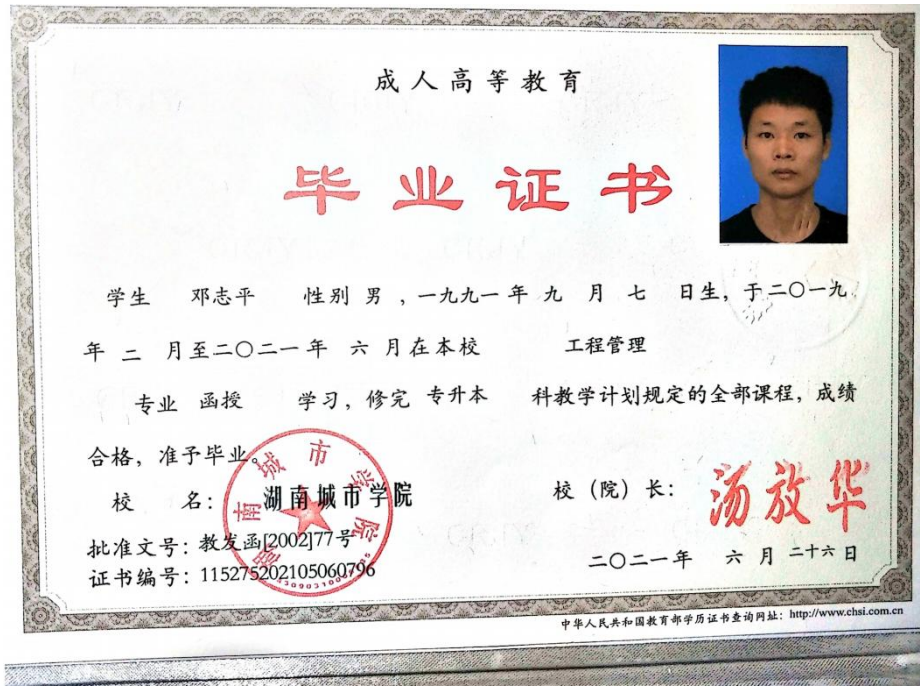 成人高等教育
毕业证书
学生 邓志平 性别 男 ，一九九一年 九 月 七 日生，于二〇一九
年 二 月至二〇二一年 六 月在本校 工程管理
专业 函授 学习，修完 专升本 科教学计划规定的全部课程，成绩
合格，准予毕业。
校 名：湖南城市学院
校（院）长：汤放华
批准文号：教发函[2002]77号
证书编号：115275202105060796
二〇二一年 六 月 二十六 日
湖南城市学院
中华人民共和国教育部学历证书查询网址：http://www.chsi.com.cn